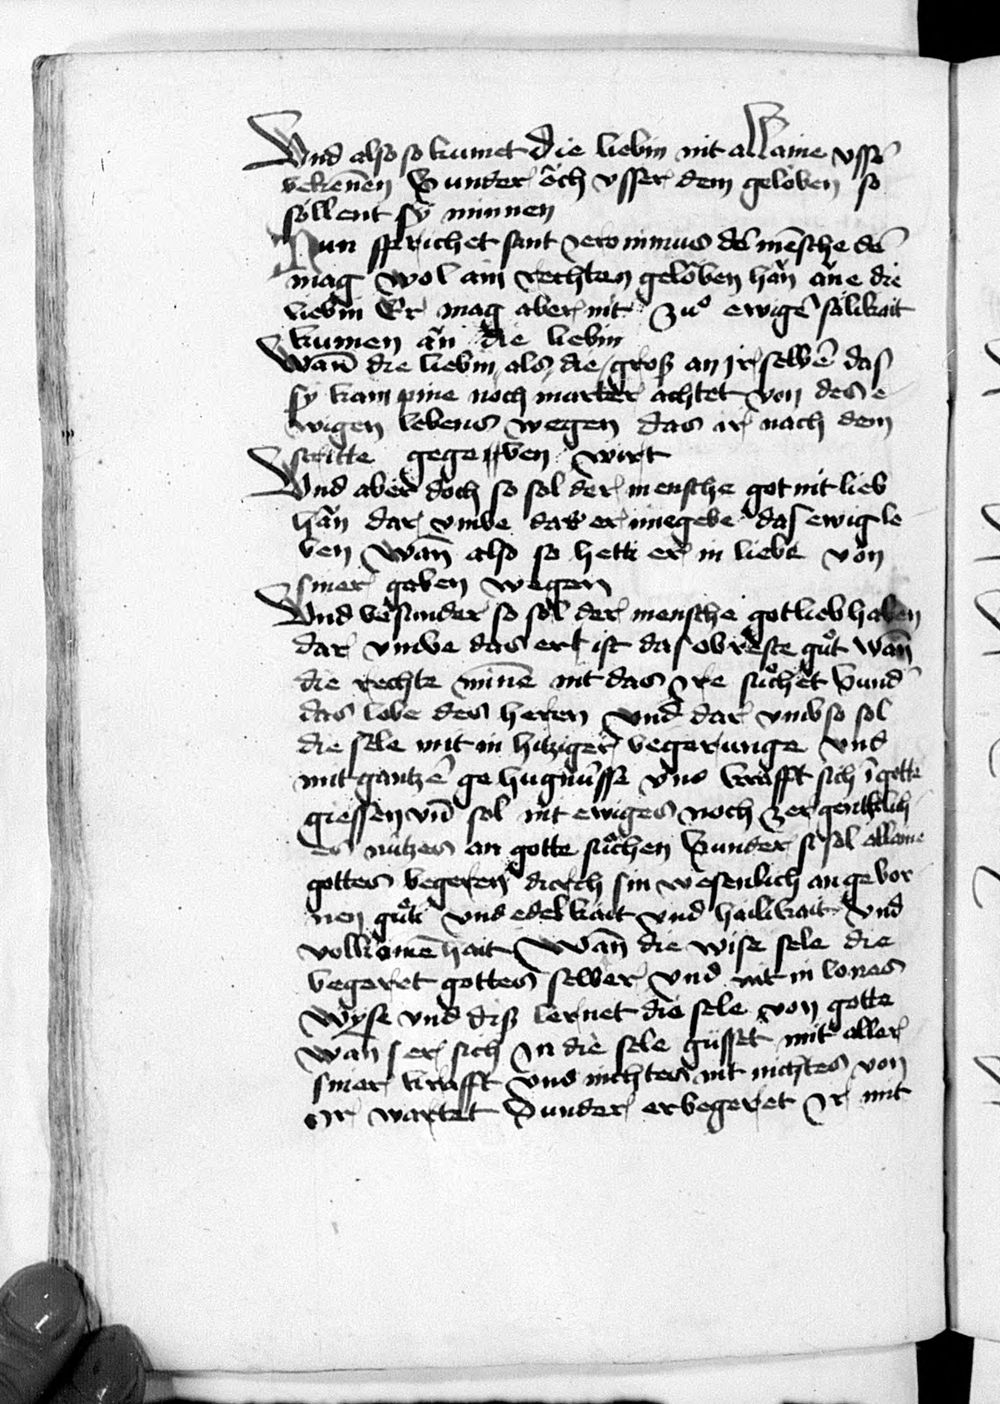 Vnd also so kumet die liebin nit allaine vssē
bekenēn Sunder ôch vsser dem gelôben so
sôllent sÿ minnen
Nun sprichet sant Jeronimus dē mēsche dē
mag wol ain rechten gelôben hăn ăne die
liebin Er mag aber nit zuͦ ewigē sălikait
kumen ăn die liebin
Wañ die liebin als die groß an jr selbē das
sy kain pine noch marter achtet von des e
wigen lebens wegen das ir nach dem
stritte gegeben wirt
Vnd aber doch so sol der mensche got nit lieb
hăn dar vmbe das er ime gebe das ewig le
ben Wañ also so hetti er in liebe von
siner gaben wegen
Vnd besunder so sol der mensche got lieb haben
dar vmbe das er ist das obreste guͦt wañ
die rechte minē nit das Jre suͦchet Sundʼ
das lobe des heren vnd dar vmb so sol
die sele mit in hitziger begerunge vnd
mit gantzē gehugnüsse vnd krafft sich ī gotte
giessen vñ sol nit ewiges noch zergenklich
es nützes an gotte suͦchen Sunder si sol allaine
gottes begeren durch sin wesenlich angebor
nen guͦti vnd edelkait vnd hailikait vnd
volkomēhait Wañ die wise sele die
begeret gottes selber vnd nit in lones
wyse vnd diß lernet die sele von gotte
wañ er sich Jn die sele güsset mit aller
siner krafft vnd nichtes nit nichtes von
Jr wartet Sunder er begeret Jr mit